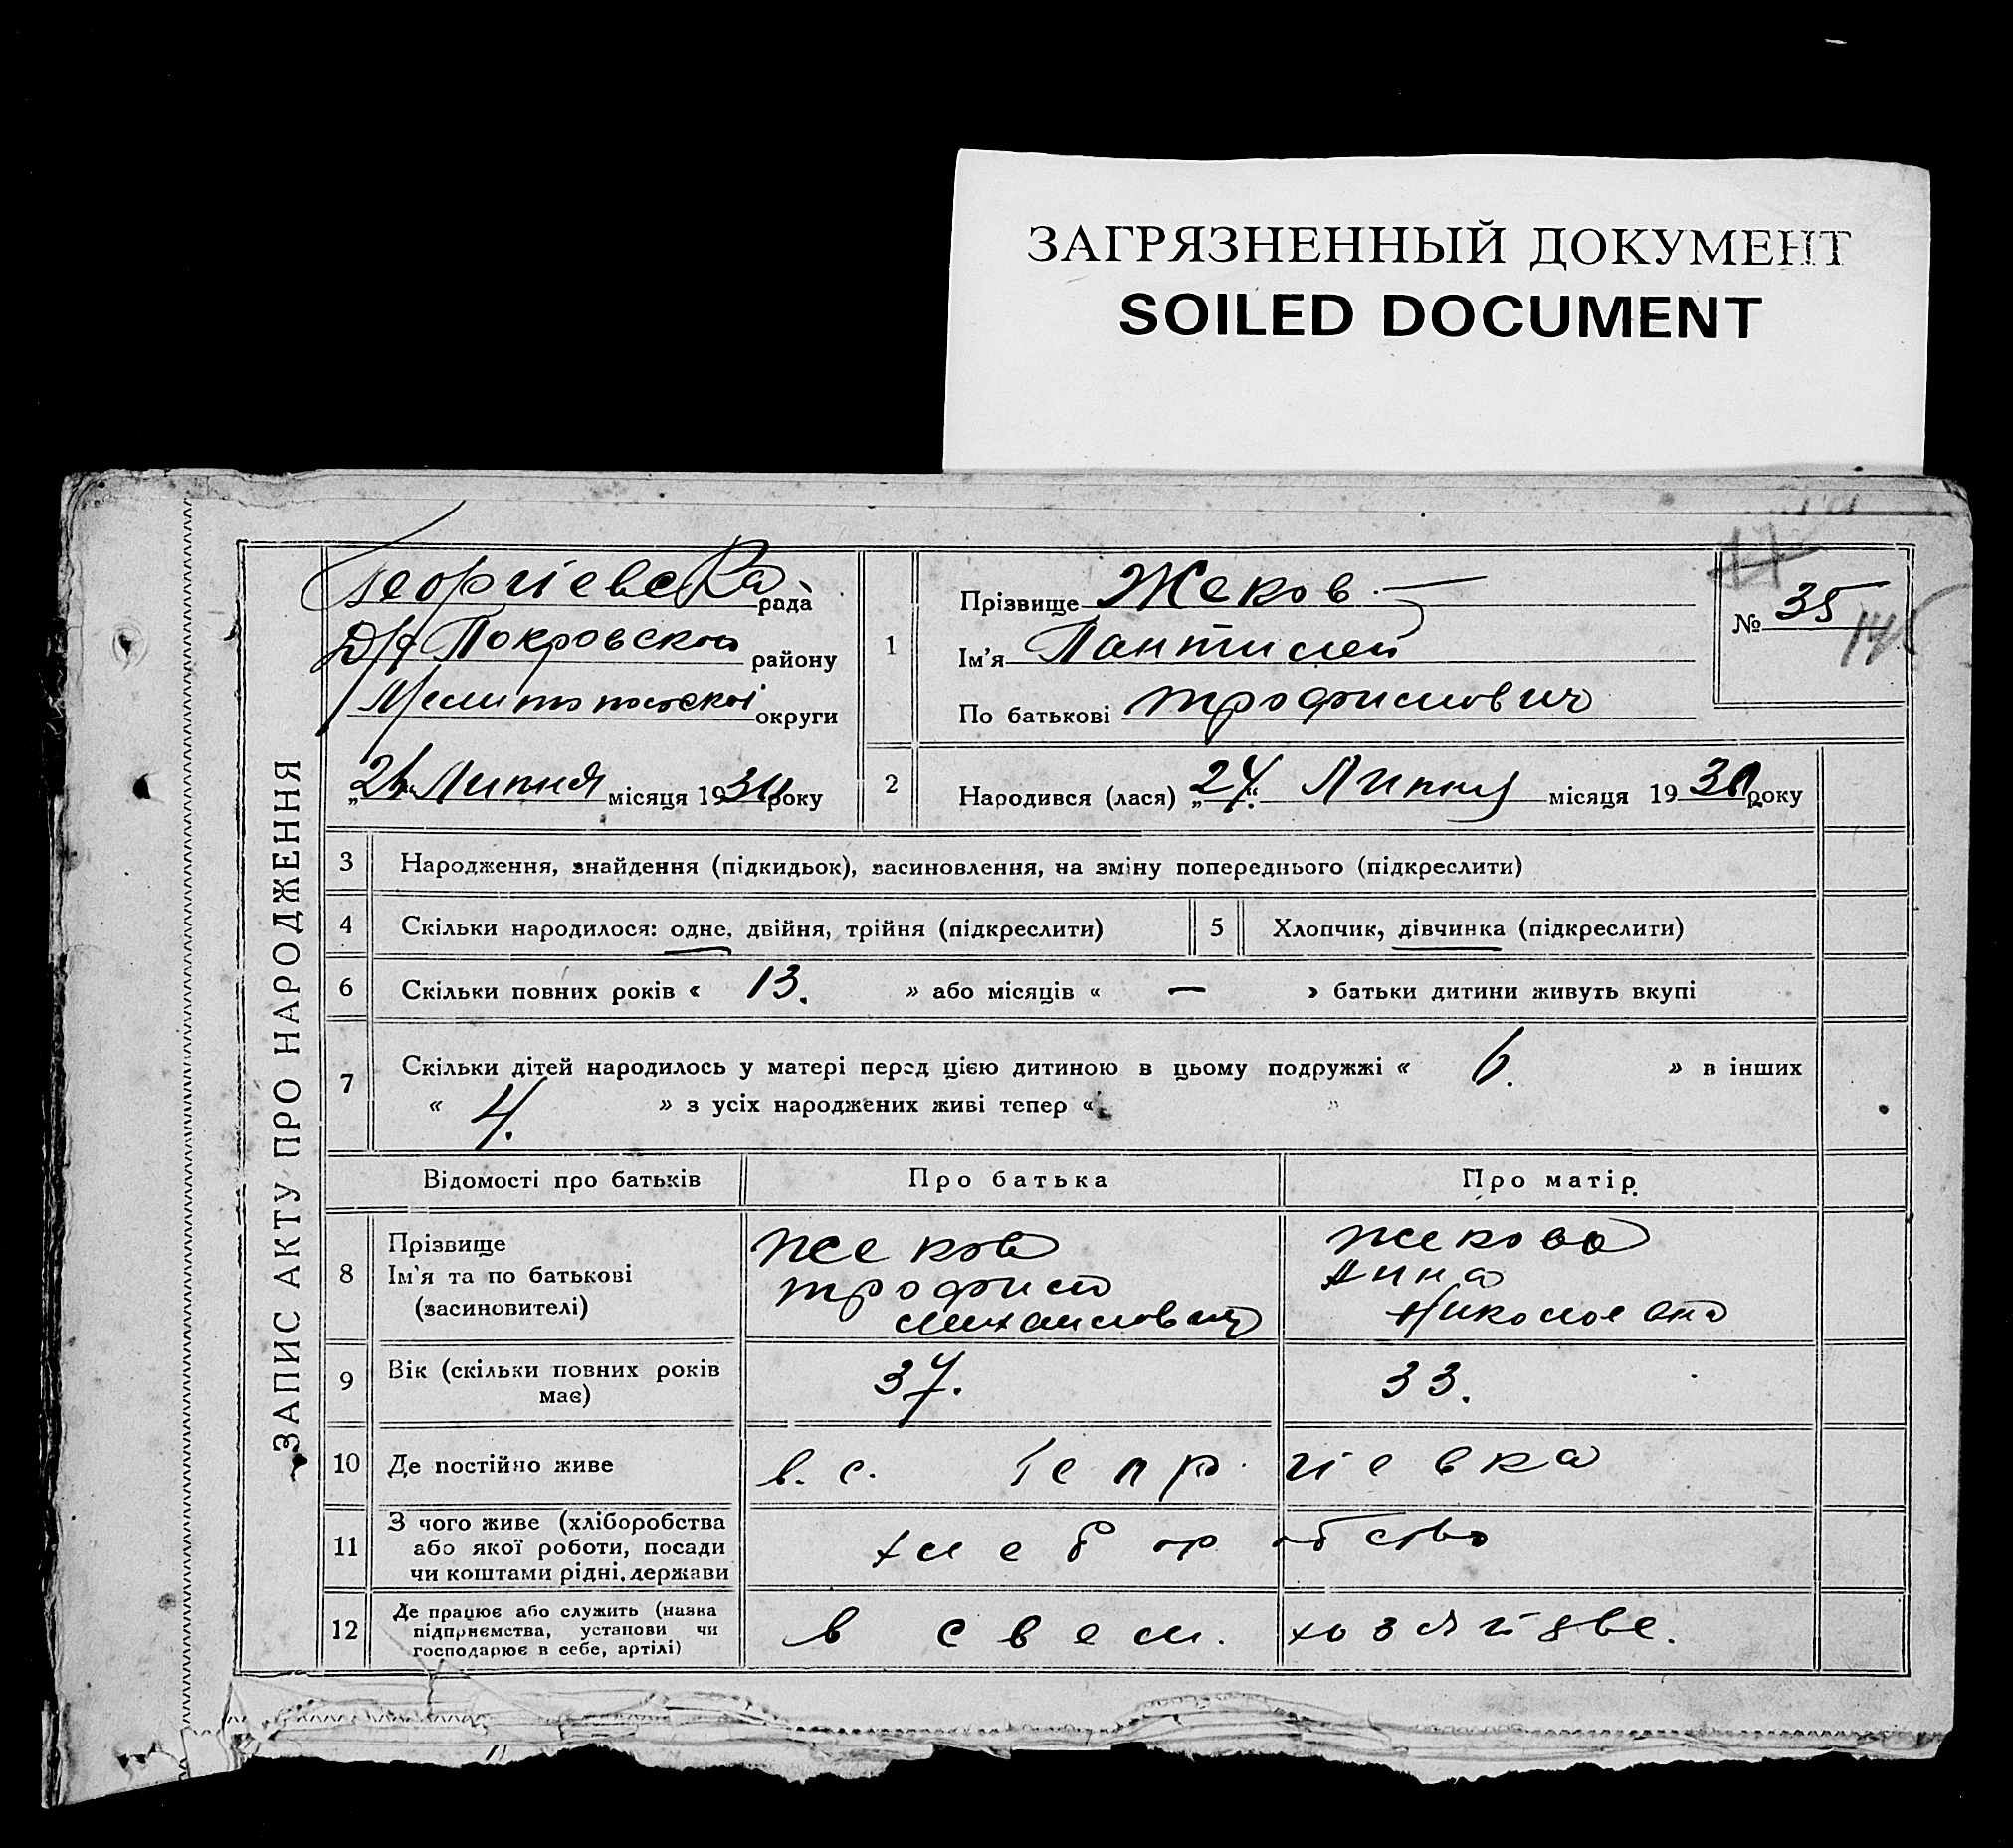 ЗАГРЯЗНЕННЫЙ ДОКУМЕНТ
SOILED DOCUMENT
ЗАПИС АКТУ ПРО НАРОДЖЕННЯ
Георгіевська рада
Покровской району
Мелитопольскоі округи
Липня місяця 1930 року
1
Прізвище Жеков
Ім'я Пантилей
По батькові Трофимович
№ 35
2
Народився (лася) „27“ Липня місяця 1930 року
3
Народження, знайдення (підкидьок), засиновлення, на зміну попереднього (підкреслити)
4
Скільки народилося: одне, двійня, трійня (підкреслити)
5
Хлопчик, дівчинка (підкреслити)
6
Скільки повних років « 13. » або місяців « — » батьки дитини живуть вкупі
7
Скільки дітей народилось у матері перед цією дитиною в цьому подружжі « 6. » в інших
« 4. » з усіх народжених живі тепер « »
Відомості про батьків
Про батька
Про матір
8
Прізвище
Ім'я та по батькові
(засиновителі)
Жеков
Трофим
Михайлович
Жекова
Анна
Николаевна
9
Вік (скільки повних років
має)
37.
33.
10
Де постійно живе
в. с. Георгіевка
11
З чого живе (хліборобства
або якої роботи, посади
чи коштами рідні, держави
хлеборобство
12
Де працює або служить (назва
підприємства, установи чи
господарює в себе, артілі)
в своем. хозяйстве.